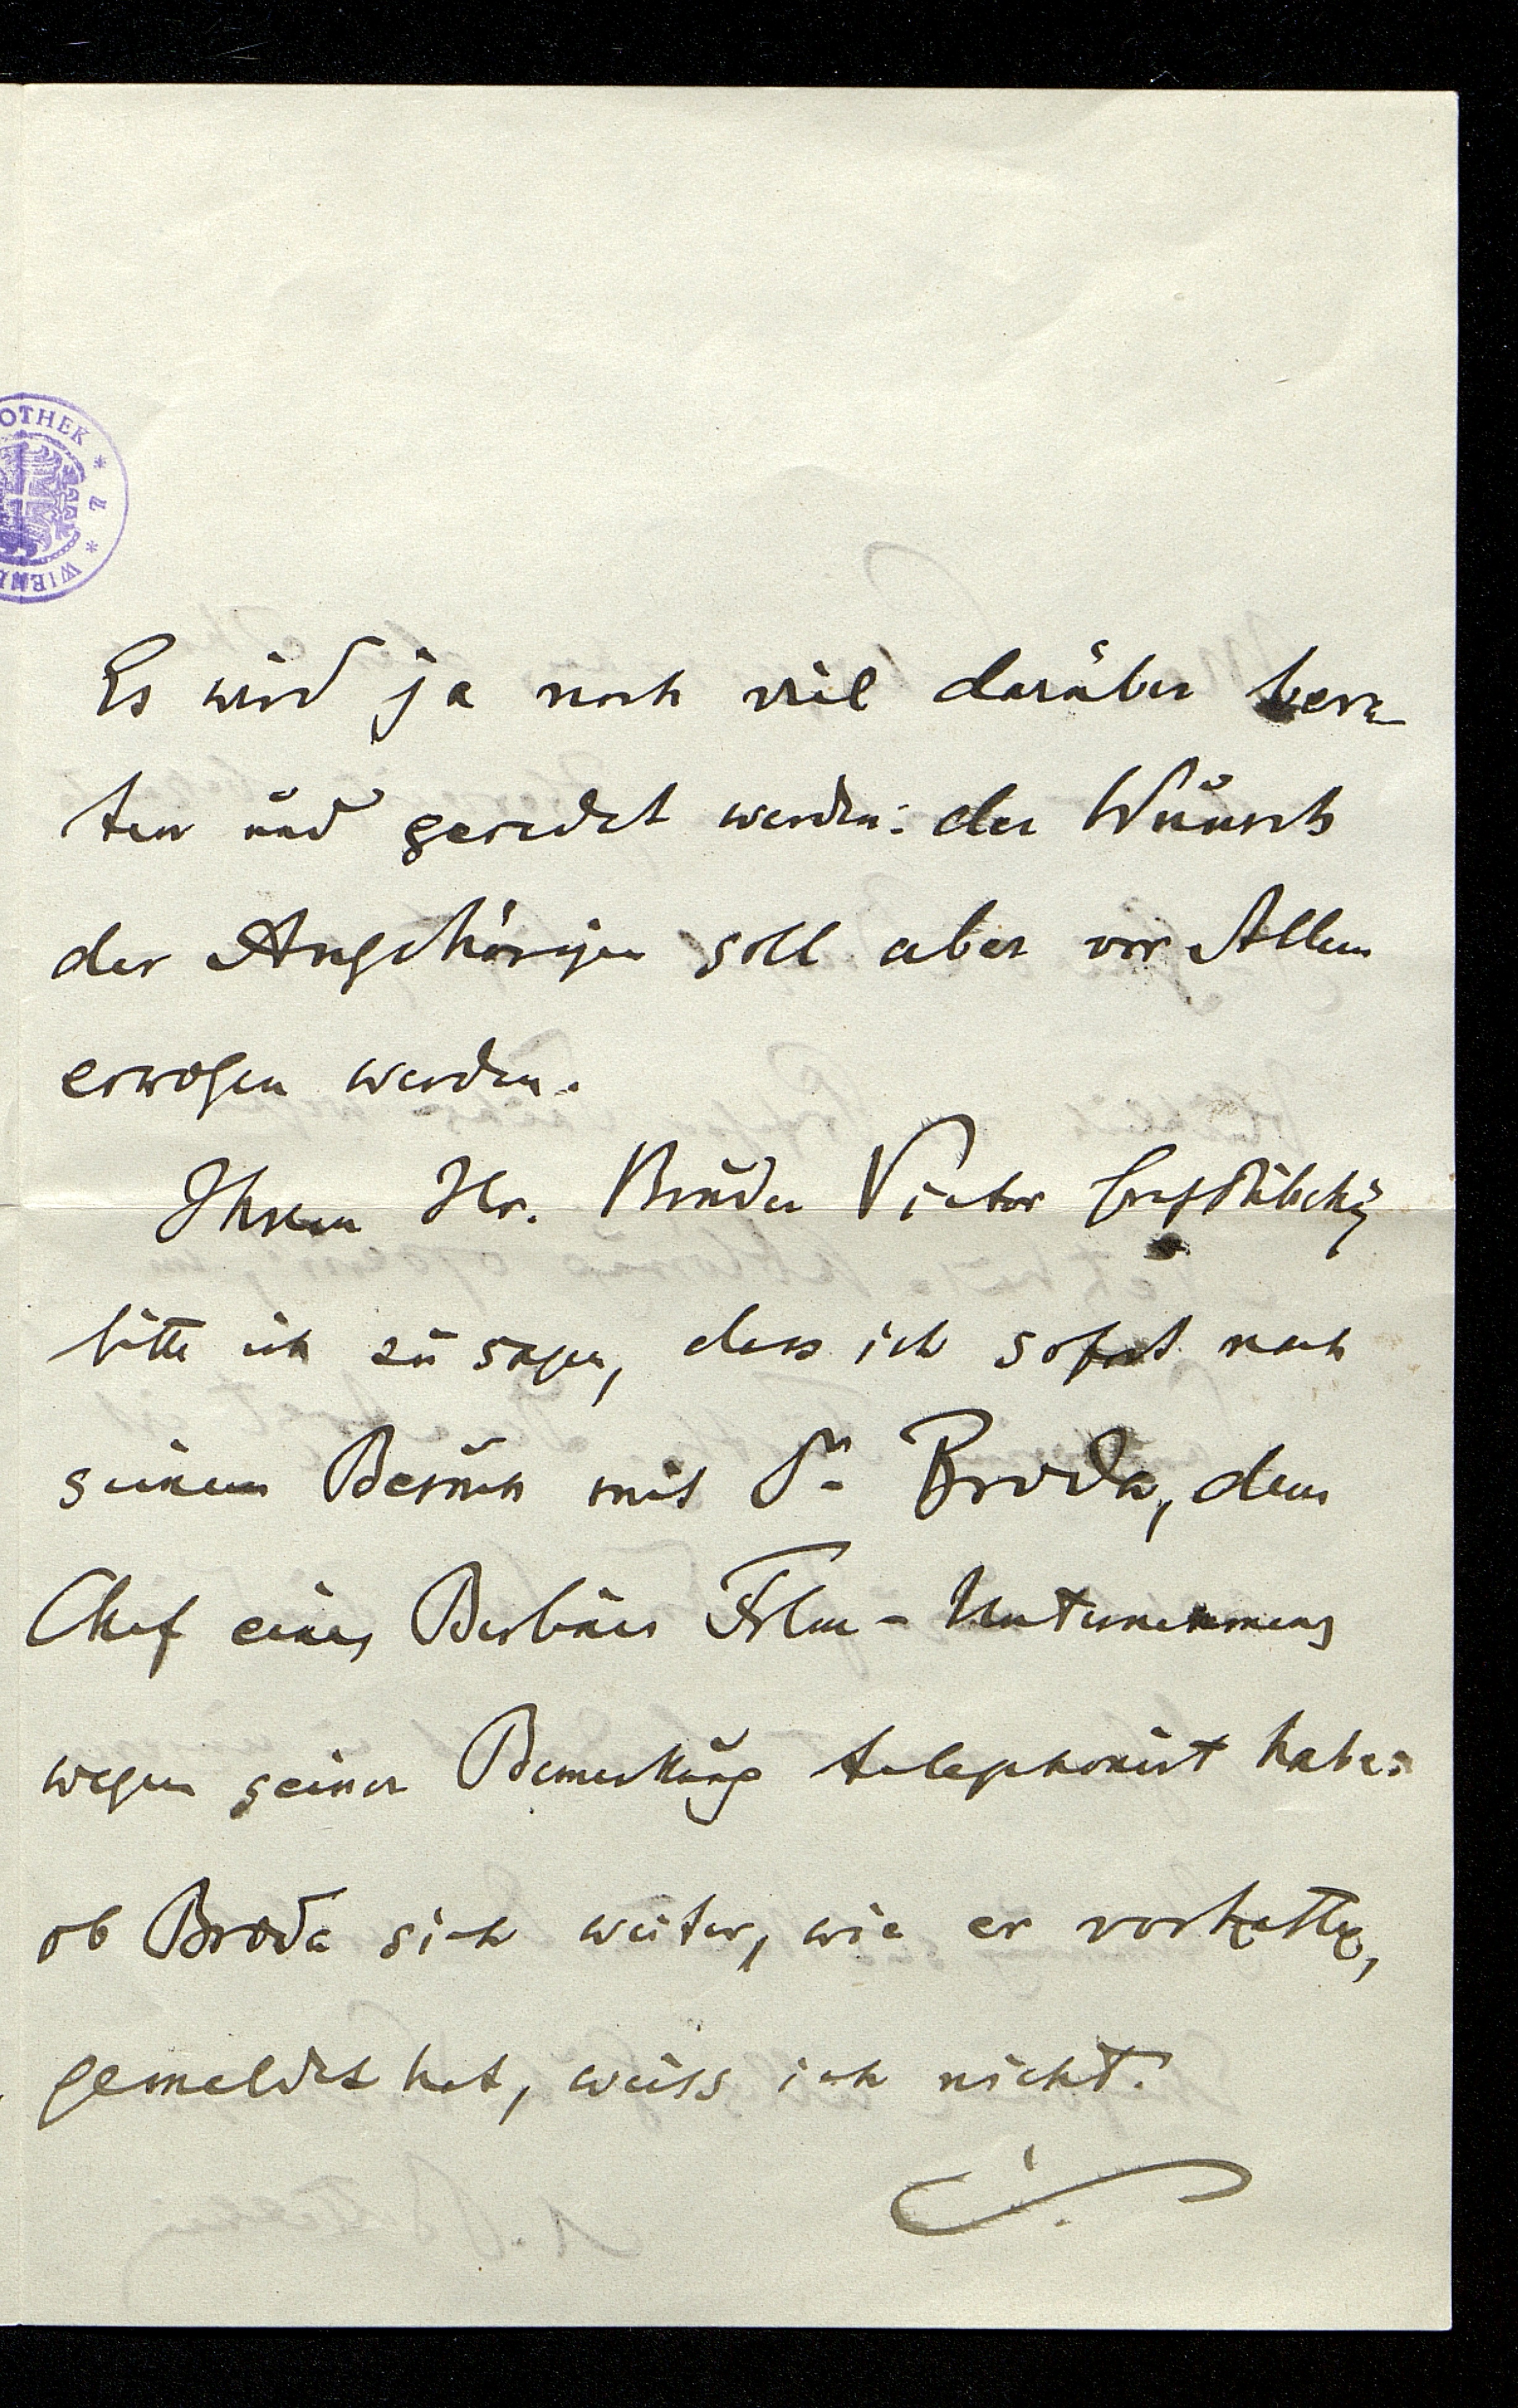 OTHEK * 7 * WIENE
Es wird ja noch viel darüber bera
ten und geredet werden: der Wunsch
der Angehörigen soll aber vor Allem
erwogen werden.
Ihrem Hr. Bruder Victor Graf Dubsky
bitte ich zu sagen, dass ich sofort nach
seinem Besuch mit Dr Broda, dem
Chef eines Berliner Film-Unternehmens
wegen seiner Bemerkung telephonirt habe:
ob Broda sich weiter, wie er vorhatte,
gemeldet hat, weiss ich nicht.